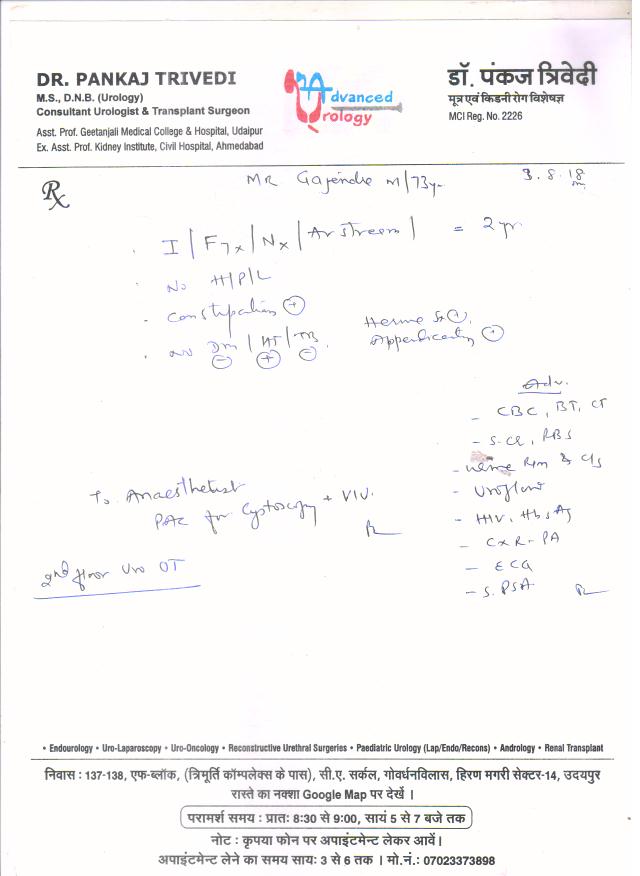 DR. PANKAJ TRIVEDI
M.S., D.N.B. (Urology)
Consultant Urologist & Transplant Surgeon
Asst. Prof. Geetanjali Medical College & Hospital, Udaipur
Ex. Asst. Prof. Kidney Institute, Civil Hospital, Ahmedabad
Advanced
Urology
डॉ. पंकज त्रिवेदी
मूत्र एवं किडनी रोग विशेषज्ञ
MCI Reg. No. 2226
Rx
MR Gajendre M/73yr
3.8.18
I | F7x | Nx | Stream | = 2 yr.
No H/P/L
- Constipation (+)
DM (-) | HT (+) | TB (-)
Hernia Sx (+)
Appendicectomy (+)
Adv.
- CBC, BT, CT
- S.Cr, RBS
- Urine R/m & C/s
- Uroflow
- HIV, HbsAg
- CXR-PA
- ECG
- S. PSA
To Anaesthetist
PAC for Cystoscopy + VIU.
2nd floor Uro OT
• Endourology • Uro-Laparoscopy • Uro-Oncology • Reconstructive Urethral Surgeries • Paediatric Urology (Lap/Endo/Recons) • Andrology • Renal Transplant
निवास : 137-138, एफ-ब्लॉक, (त्रिमूर्ति कॉम्पलेक्स के पास), सी.ए. सर्कल, गोवर्धनविलास, हिरण मगरी सेक्टर-14, उदयपुर
रास्ते का नक्शा Google Map पर देखें ।
परामर्श समय : प्रातः 8:30 से 9:00, सायं 5 से 7 बजे तक
नोट : कृपया फोन पर अपाइंटमेन्ट लेकर आवें।
अपाइंटमेन्ट लेने का समय सायः 3 से 6 तक । मो.नं.: 07023373898